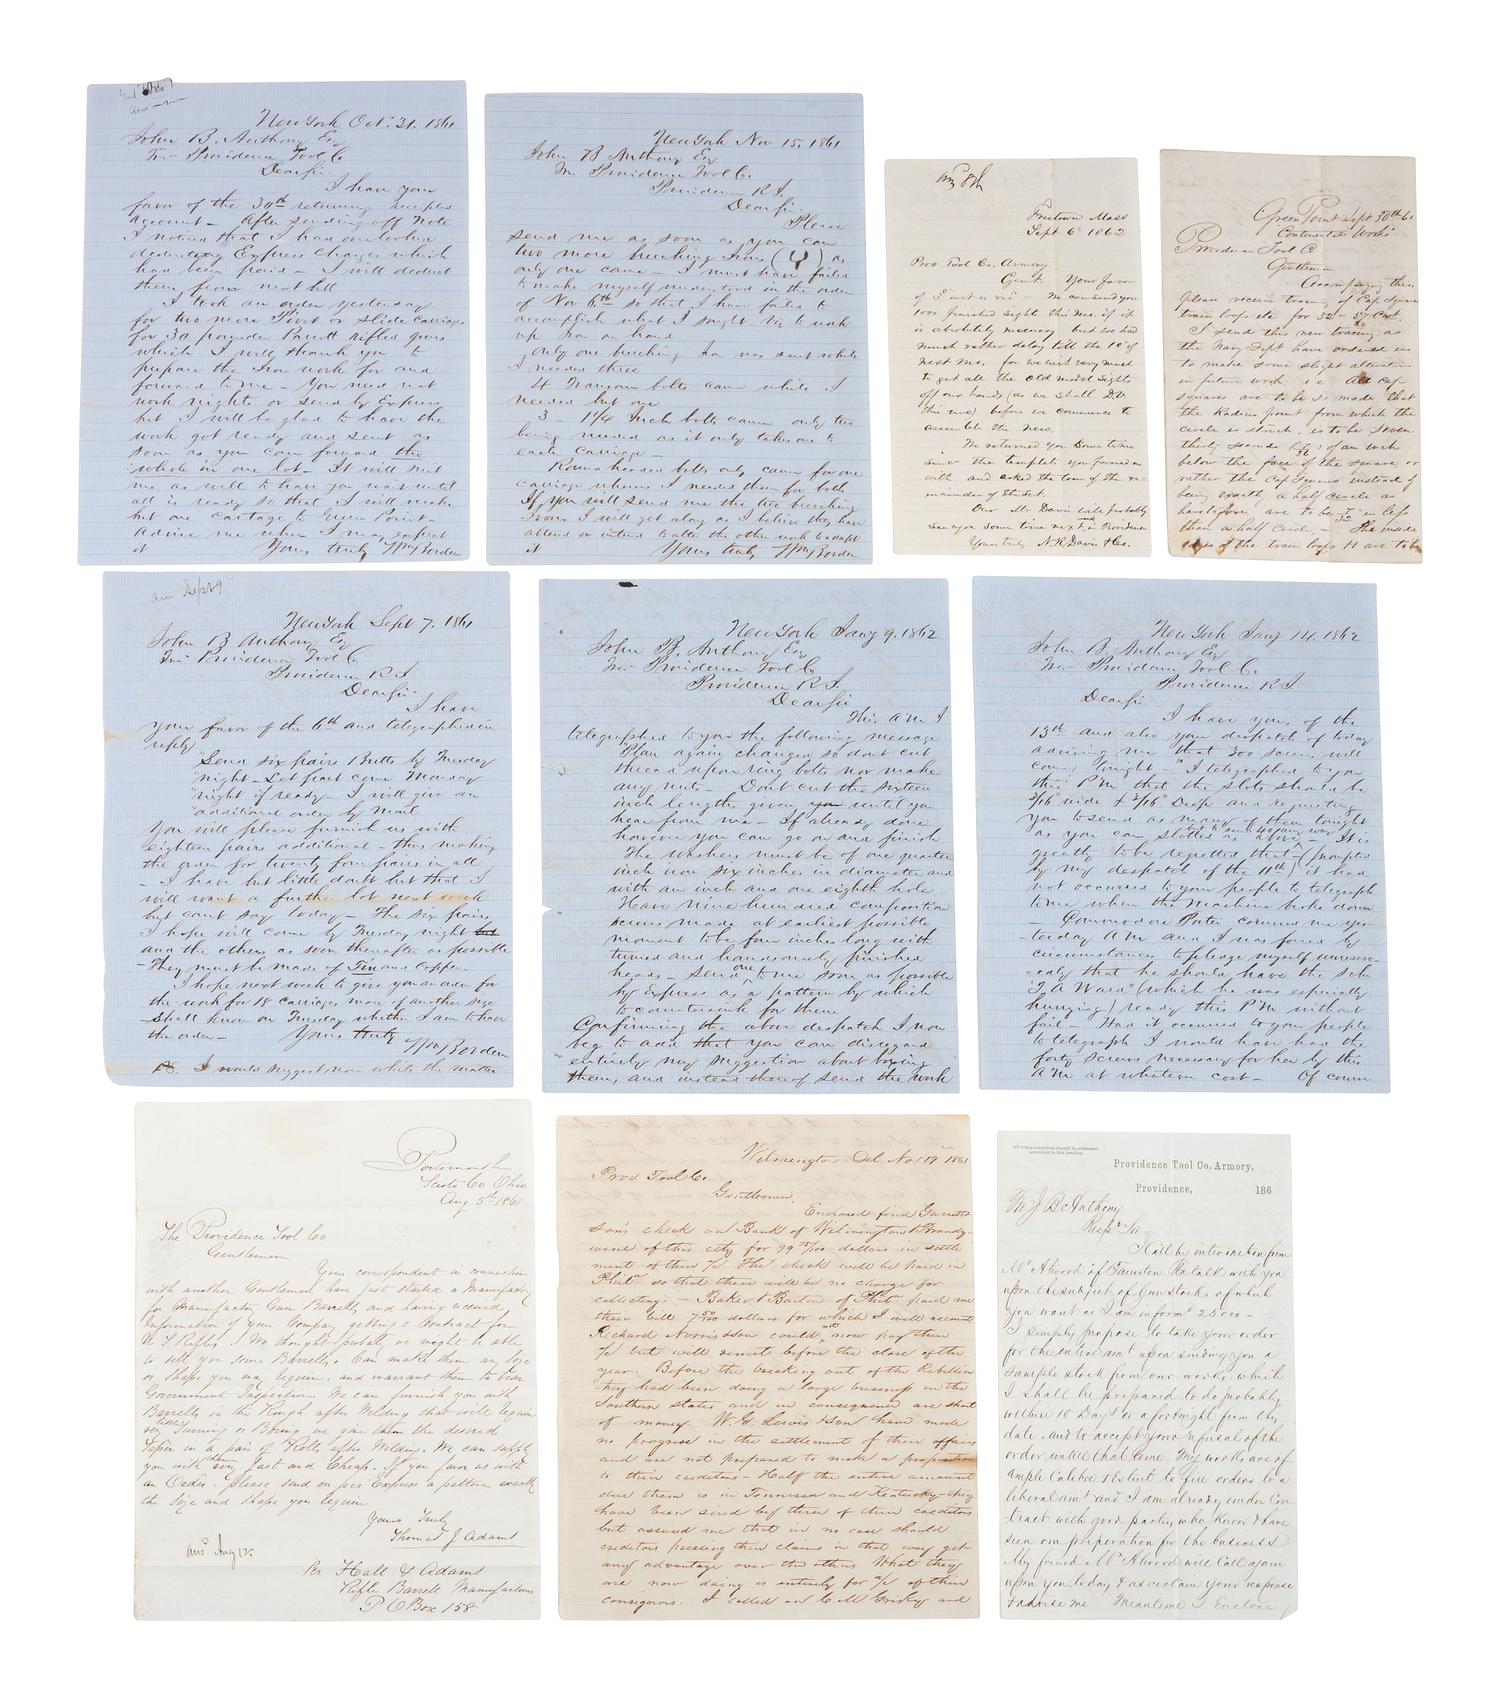 New York Oct. 31. 1861
John B. Anthony Esq
Providence Tool Co
Dear Sir
I have your
favor of the 30th returning accepted
account - After sending off Note
I noticed that I had overlooked
deducting Express charges which
had been paid - I will deduct
them from next bill
I took an order yesterday
for two more Pivot or Slide Carriages
for 30 pounder Parrott rifled guns
which I will thank you to
prepare the Iron work for and
forward to me - You need not
work nights or send by Express
but I will be glad to have the
work got ready and sent as
soon as you can forward the
whole in one lot - It will suit
me as well to have you wait until
all is ready so that I will make
but one cartage to Green Point -
advise me when I may expect
it Yours truly Wm Borden
New York Nov 15, 1861
John B Anthony Esq
Providence Tool Co.
Providence R I.
Dear Sir
Please
send me as soon as you can
two more breeching Irons ( ) as
only one came - I must have failed
to make myself understood in the order
of Nov 6th so that I have failed to
accomplish what I sought - viz to work
up iron on hand
Only one breeching Iron was sent while
I needed three
4 Transom bolts came while I
needed but one
3 - 1 1/4 Inch bolts came only two
being needed as it only takes one to
each carriage -
Round headed bolts only came for one
carriage whereas I needed them for both
If you will send me the two breeching
Irons I will get along as I believe they have
altered or intend to alter the other work to adapt
it Yours truly Wm Borden
Ans 8th
Freetown Mass
Sept 6th 1862
Prov. Tool Co. Armory
Gent. Your favor
of 5th inst is rec - We can send you
1000 finished sights this mo. if it
is absolutely necessary but we had
much rather delay till the 10th of
next mo, for we wish very much
to get all the old model sights
off our hands (as we shall D.V.
this mo) before we commence to
assemble the news.
We returned you some time
since the templets you favored us
with and asked the loan of the re-
mainder of the set.
Our Mr Davis will probably
see you some time next week in Providence
Yours truly N. R. Davis & Co.
Green Point Sept 30th 61
Continental Works
Providence Tool Co
Gentlemen
Accompanying this,
please receive tracing of Cap Square
train loops etc for 32 - 57 Cwt.
I send this new tracing as
the Navy Dept have ordered us
to make some slight alteration
in future work i.e. All Cap
squares are to be so made, that
the Radius point from which the
circle is struck, is to be seven
thirty seconds 7/32 of an inch
below the face of the square, or
rather the Cap Squares instead of
being exactly a half circle as
heretofore, are to be 7/32 in less
than a half Circle, - The inside
edges of the train loops H are to be
Ans Sept 9
New York Sept 7. 1861
John B Anthony Esq
Providence Tool Co
Providence R. I
Dear Sir -
I have
your favor of the 6th and telegraphed in
reply
"Send six pairs Butts by Tuesday
"night - Let part come Monday
"night if ready - I will give an
"additional order by Mail
You will please furnish us with
eighteen pairs additional - thus making
the order for twenty four pairs in all
- I have but little doubt but that I
will want a further lot next week
but cant say today - The six pairs
I hope will come by Tuesday night
and the others as soon thereafter as possible
- They must be made of Tin and Copper -
I hope next week to give you an order for
the work for 18 carriages more of another size
- Shall know on Tuesday whether I am to have
the order - Yours truly Wm Borden
PS. I would suggest now while the matter
New York Jany 9. 1862
John B. Anthony Esq
Providence Tool Co
Providence R I
Dear Sir
This A M I
telegraphed to you the following message
"Plan again changed so dont cut
thread upon ring bolts nor make
any nuts - Dont cut the sixteen
inch lengths given until you
hear from me - If already done
however you can go on and finish
The washers must be of one quarter
inch iron six inches in diameter and
with an inch and one eighth hole
Have nine hundred composition
screws made at earliest possible
moment to be four inches long with
turned and handsomely finished
heads - Send one to me soon as possible
by Express as a pattern by which
to countersink for them
Confirming the above despatch I now
beg to add that you can disregard
entirely my suggestion about boxing
them, and instead thereof send the work
New York Jany 14. 1862
John B. Anthony Esq
Providence Tool Co.
Providence R I.
Dear Sir
I have yours of the
13th and also your despatch of today
advising me that "300 screws will
come tonight - " I telegraphed to you
this P M that the slots should be
3/16" wide & 3/16" Deep and requesting
you to send as many of them tonight
as you can slotted as above - It is
but to send 40 any way
greatly to be regretted that (prompted
by my despatch of the 11th) it had
not occurred to your people to telegraph
to me when the Machine broke down
Commodore Porter cornered me yes-
-terday A M and I was forced by
circumstances to pledge myself unreserv-
-edly that he should have the Sch
"T. A Ward" (which he was especially
hurrying) ready this P M without
fail - Had it occurred to your people
to telegraph I would have had the
forty screws necessary for her by this
A M at whatever cost - Of course
Portsmouth
Scioto Co Ohio
Aug 5th 1861
The Providence Tool Co
Gentlemen
Your correspondent in connection
with another Gentleman have just started a Manufactory
for Manufactory Gun Barrells and having received
Information of your Company getting a Contract for
U S Rifles. We thought probably we might be able
to sell you some Barrells. Can make them any Size
or Shape you may require. and warrant them to bear
Government Inspection. We can furnish you with
Barrells in the Rough after Welding that will require
very little Turning or Boring we give them the desired
Taper in a pair of Rolls after Welding. We can supply
you with them very fast and Cheap. If you favor us with
an Order. please send on per Express a pattern exactly
the Size and Shape you require
Yours Truly
Thomas J Adams
Per Hall & Adams
Rifle Barrell Manufactures
P O Box 158
Ans Aug 12.
Wilmington Del, Nov 19th 1861
Prov Tool Co.
Gentlemen.
Enclosed find Garrett &
Son's check on Bank of Wilmington & Brandy-
wine of this city for 99 75/100 dollars in settle
ment of their a/c The check will be paid in
Phila so that there will be no charge for
collecting. - Baker & Barton of Phila paid me
their bill 7 50/100 dollars for which I will account
Richard Norris & son could not now pay their
a/c but will remit before the close of the
year. Before the breaking out of the Rebellion
they had been doing a large business in the
Southern states and in consequence are short
of money. W. G. Lewis & Son have made
no progress in the settlement of their affairs
and are not prepared to make a proposition
to their creditors - Half the entire amount
due them is in Tennessee and Kentucky - they
have been sued by three of their creditors
but assured me that in no case should
creditors pressing their claims in that way get
any advantage over the others. What they
are now doing is entirely for a/c of their
consignors. I called on C. M Griskey and
All communications should be addressed
according to this heading.
Providence Tool Co. Armory,
Providence, 186
Mr J. B. Anthony
Resp. Sir
I call by introduction from
Mr Atwood of Taunton to talk with you
upon the subject of Gun Stocks of which
you want as I am inform'd 25000 -
I simply propose to take your order
for the entire amt upon sending you a
Sample stock from our works, which
I shall be prepared to do probably
within 10 Days or a fortnight from this
date. and to accept your refusal of the
order until that time. My works are of
ample Calibre & Extent to fill orders to a
liberal amt and I am already under Con-
tract with good parties who know & have
seen our preparation for the business
My friend Mr Atwood will Call again
upon you today & ascertain your response
& advise me. Meantime I Enclose